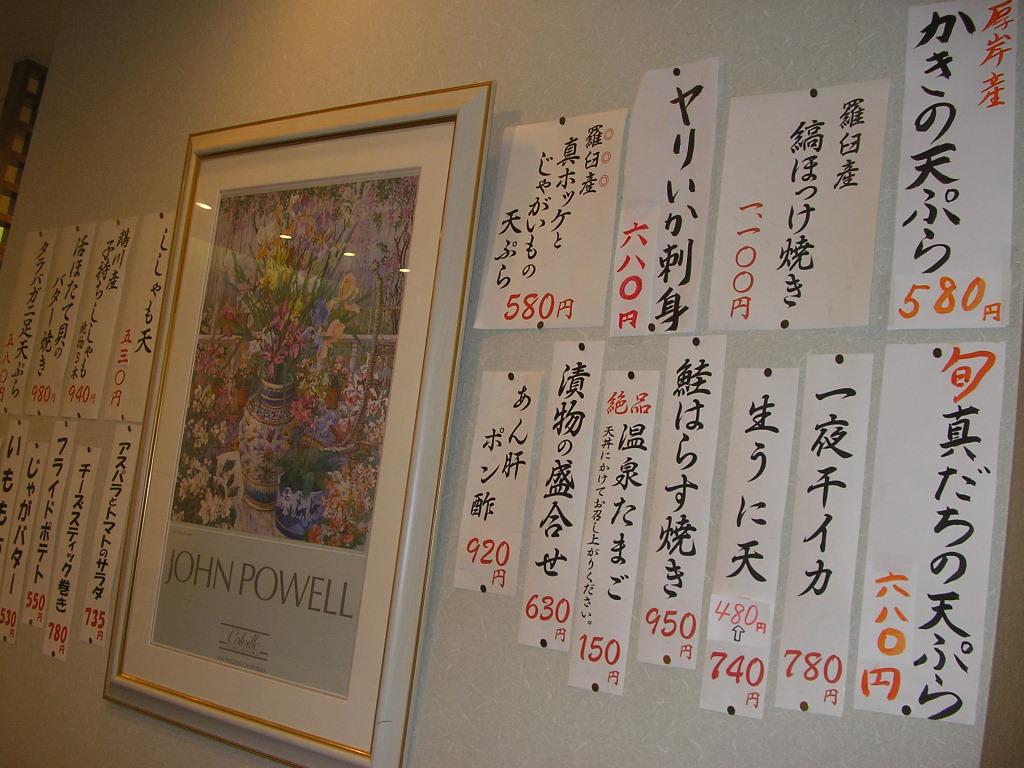 厚岸産
かきの天ぷら
580円
羅臼産
縞ほっけ焼き
一、一〇〇円
ヤリいか刺身
六八〇円
羅臼産
真ホッケと
じゃがいもの
天ぷら
580円
旬真だちの天ぷら
六八〇円
一夜干イカ
780円
生うに天
480円
⇧
740円
鮭はらす焼き
950円
絶品
温泉たまご
天丼にかけてお召し上がりください。
150円
漬物の盛合せ
630円
あん肝
ポン酢
920円
JOHN POWELL
ししゃも天
五三〇円
鵡川産
子持ちししゃも
940円
活ほたて貝の
バター焼き
980円
タラバガニ足天ぷら
五八〇円
アスパラとトマトのサラダ
735円
チーズスティック巻き
780円
フライドポテト
550円
じゃがバター
530
いもも